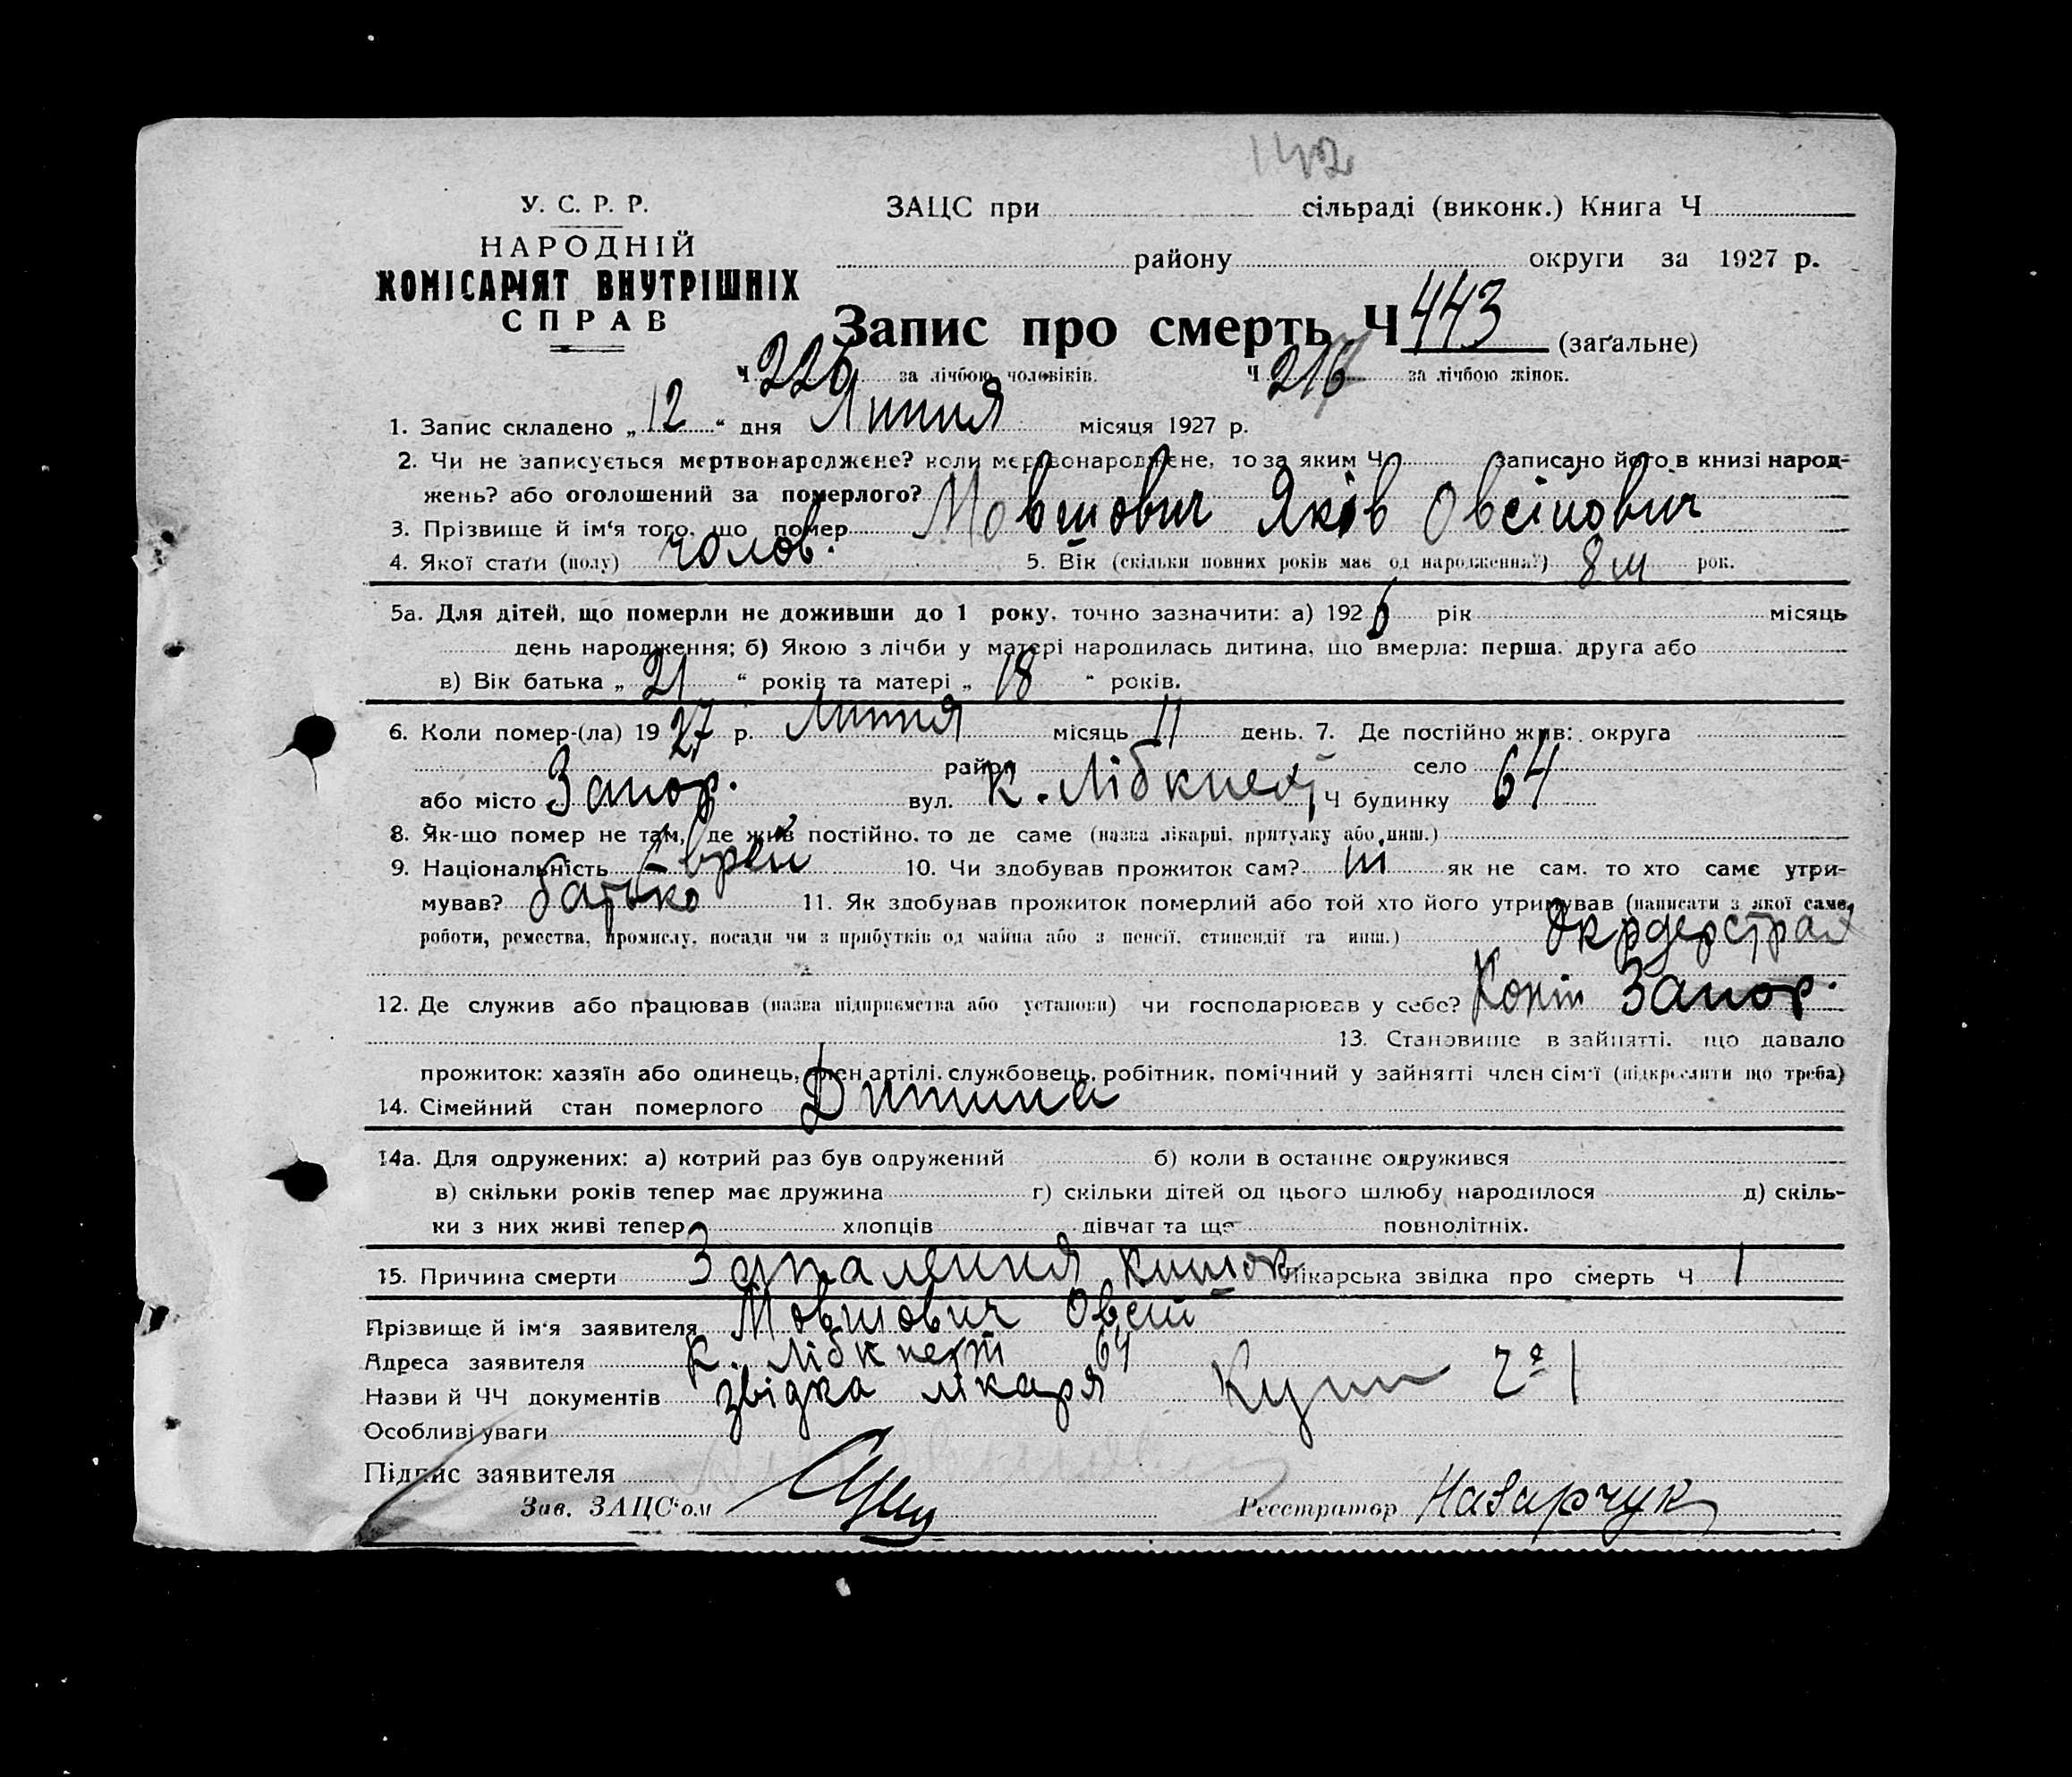 142
У. С. Р. Р.
НАРОДНІЙ
КОМІСАРІЯТ ВНУТРІШНІХ
СПРАВ
ЗАЦС при сільраді (виконк.) Книга Ч
району округи за 1927 р.
Запис про смерть Ч 443 (загальне)
Ч 226 за лічбою чоловіків. Ч за лічбою жінок.
1. Запис складено „ 12 “ дня Липня місяця 1927 р.
2. Чи не записується мертвонароджене? коли мертвонароджене, то за яким Ч записано його в книзі народ-
жень? або оголошений за померлого?
3. Прізвище й ім‘я того, що помер Мовшович Яків Овсійович
4. Якої стати (полу) чолов. 5. Вік (скільки повних років має од народження?) 8 м рок.
5а. Для дітей, що померли не доживши до 1 року, точно зазначити: а) 1926 рік місяць
день народження; б) Якою з лічби у матері народилась дитина, що вмерла: перша, друга або
в) Вік батька „ 21 “ років та матері „ 18 “ років.
6. Коли помер-(ла) 1927 р. Липня місяць 11 день. 7. Де постійно жив: округа
район село
або місто Запор. вул. К. Лібкнехт Ч будинку 64
8. Як-що помер не там, де жив постійно, то де саме (назва лікарні, притулку або инш.)
9. Національність Єврей 10. Чи здобував прожиток сам? ні як не сам, то хто саме утри-
мував? батько 11. Як здобував прожиток померлий або той хто його утримував (написати з якої саме,
роботи, ремества, промислу, посади чи з прибутків од майна або з пенсії, стипендії та инш.) Окрдерстрах
12. Де служив або працював (назва підприємства або установи) чи господарював у себе? Запор.
13. Становище в зайнятті, що давало
прожиток: хазяїн або одинець, член артілі, службовець, робітник, помічний у зайнятті член сім‘ї (підкреслити що треба)
14. Сімейний стан померлого Дитина
14а. Для одружених: а) котрий раз був одружений б) коли в останнє одружився
в) скільки років тепер має дружина г) скільки дітей од цього шлюбу народилося д) скіль-
ки з них живі тепер хлопців дівчат та ще повнолітніх.
15. Причина смерти Запалення кишок Лікарська звідка про смерть Ч 1
Прізвище й ім‘я заявителя Мовшович Овсій
Адреса заявителя К. Лібкнехт 64
Назви й ЧЧ документів звідка лікаря
Особливі уваги
Підпис заявителя
Зав. ЗАЦС‘ом Реєстратор Назарчук